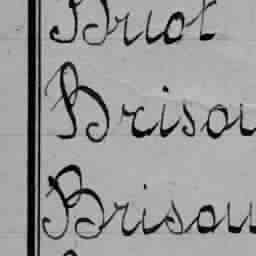 Briot
Brisou
Brisou